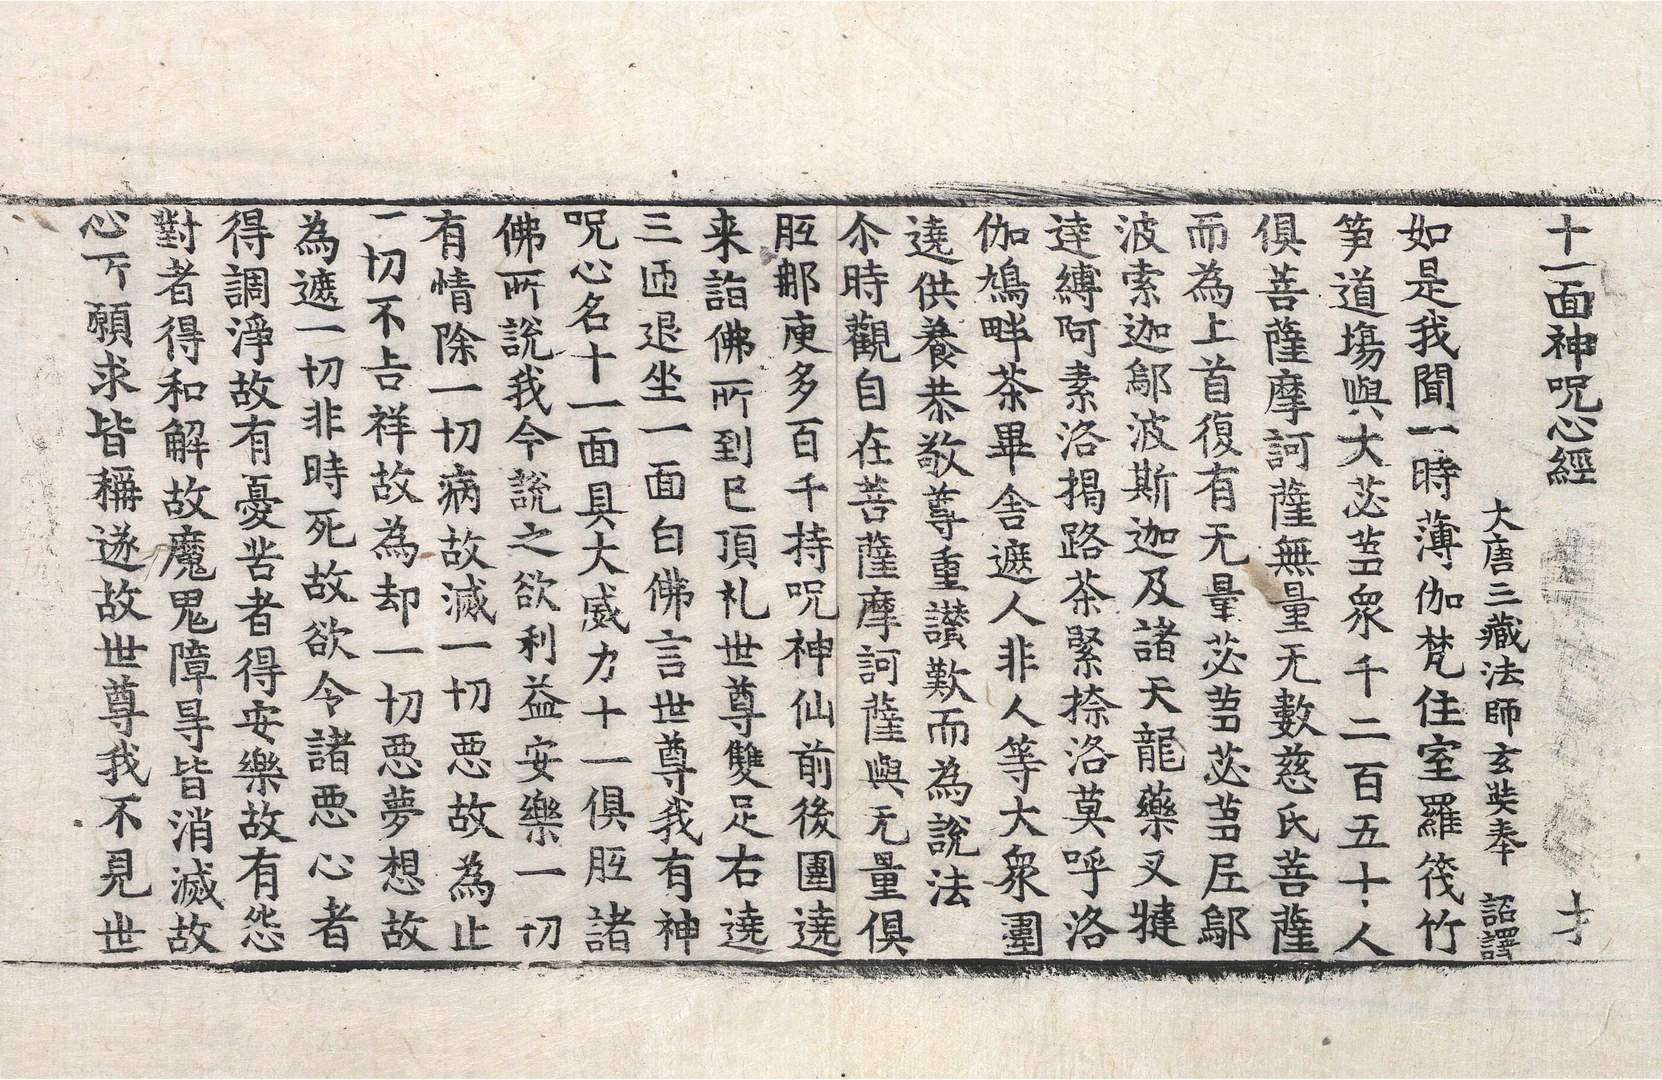 十一面神呪心經 才
大唐三藏法師玄奘奉 詔譯
如是我聞一時薄伽梵住室羅筏竹
笋道場與大苾蒭眾千二百五十人
俱菩薩摩訶薩無量无數慈氏菩薩
而為上首復有无量苾蒭苾蒭尼鄔
波索迦鄔波斯迦及諸天龍藥叉揵
達縛阿素洛揭路荼緊捺洛莫呼洛
伽鳩畔荼畢舍遮人非人等大眾圍
遶供養恭敬尊重讃歎而為說法
尒時觀自在菩薩摩訶薩與无量俱
胝那庾多百千持呪神仙前後圍遶
来詣佛所到已頂礼世尊雙足右遶
三匝退坐一面白佛言世尊我有神
呪心名十一面具大威力十一俱胝諸
佛所說我今說之欲利益安樂一切
有情除一切病故滅一切惡故為止
一切不吉祥故為却一切惡夢想故
為遮一切非時死故欲令諸惡心者
得調淨故有憂苦者得安樂故有怨
對者得和解故魔鬼障㝵皆消滅故
心所願求皆稱遂故世尊我不見世